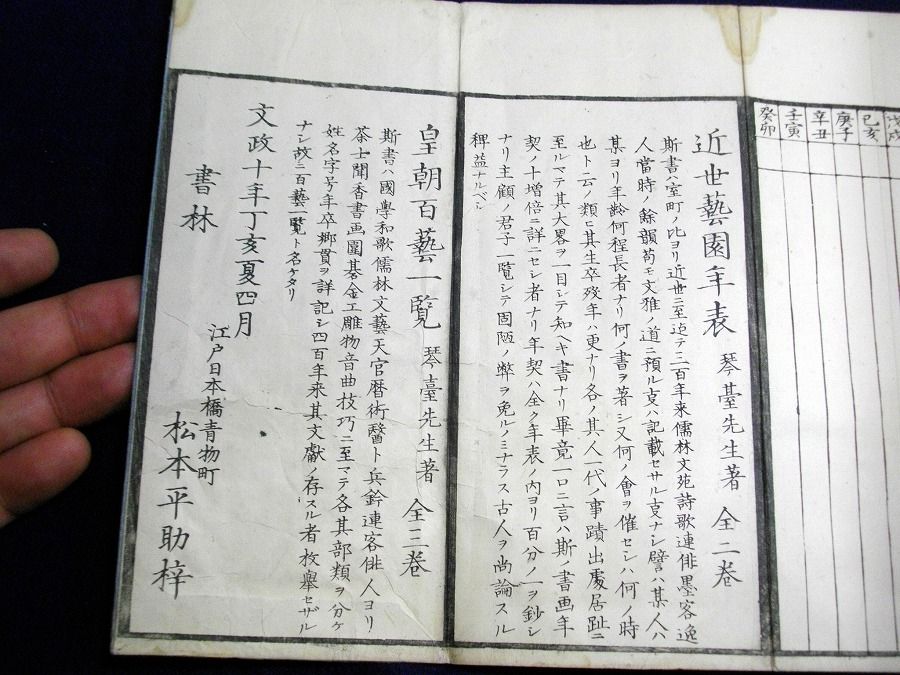 戊戌
己亥
庚子
辛丑
壬寅
癸卯
近世藝園年表 琴臺先生著 全二巻
斯書ハ室町ノ比ヨリ近世ニ至迠テ三百年来儒林文苑詩歌連俳墨客逸
人當時ノ餘韻苟モ文雅ノ道ニ預ル㕝ハ記載セサル㕝ナシ譬ハ某ノ人ハ
某ヨリ年齢何程長者ナリ何ノ書ヲ著シ又何ノ會ヲ催セシハ何ノ時
也ト云ノ類ヒ其生卒歿年ハ更ナリ各ノ其人一代ノ事蹟出處居趾ニ
至ルマテ其大畧ヲ一目シテ知ヘキ書ナリ畢竟一口ニ言ハ斯ノ書画年
契ノ十増倍ニ詳ニセシ者ナリ年契ハ全ク年表ノ内ヨリ百分ノ一ヲ鈔シ
ナリ主顧ノ君子一覧シテ固陋ノ弊ヲ免ルノミナラス古人ヲ尚論スル
稗益ナルベシ
皇朝百藝一覧 琴臺先生著 全三巻
斯書ハ國學和歌儒林文藝天官暦術醫卜兵鈐連客俳人ヨリ
茶士聞香書画圍碁金工雕物音曲技巧ニ至マテ各其部類ヲ分ケ
姓名字号年卒郷貫ヲ詳記シ四百年来其文獻ノ存スル者枚舉セザル
ナシ故ニ百藝一覧ト名ケタリ
文政十年丁亥夏四月
書林
江戸日本橋青物町
松本平助梓